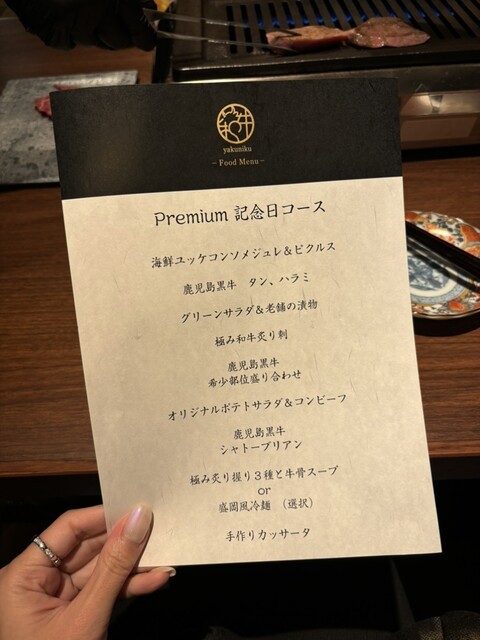 yakuniku
– Food Menu –
Premium 記念日コース
海鮮ユッケコンソメジュレ＆ピクルス
鹿児島黒牛 タン、ハラミ
グリーンサラダ＆老舗の漬物
極み和牛炙り刺
鹿児島黒牛
希少部位盛り合わせ
オリジナルポテトサラダ＆コンビーフ
鹿児島黒牛
シャトーブリアン
極み炙り握り３種と牛骨スープ
or
盛岡風冷麺 （選択）
手作りカッサータ